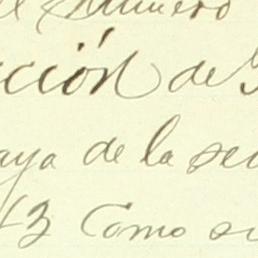 el numero
cción de
aya de la sec
43 Como su